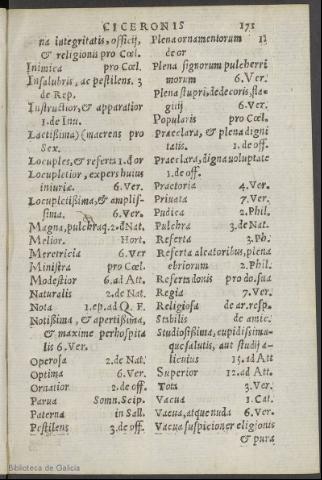 CICERONIS 171
na integritatis, officij,
& religionis pro Cœl.
Inimica pro Cœl.
Insalubris, ac pestilens. 3
de Rep.
Instructior, & apparatior
1. de Inu.
Lactißima) (maerens pro
Sex.
Locuples, & referta 1. d or
Locupletior, expers huius
iniuriæ. 6. Ver.
Locupletißima, & amplis-
sima. 6. Ver.
Magna, pulchraq. 2. d Nat
Melior. Hort.
Meretricia 6. Ver
Ministra pro Cœl.
Modestior 6. ad Att.
Naturalis 2. de Nat.
Nota 1. ep. ad Q. F.
Notißima, & apertißima,
& maxime perhospita
lis 6. Ver.
Operosa 2. de Nat.
Optima 6. Ver.
Ornatior 2. de off.
Parua Somn. Scip.
Paterna in Sall.
Pestilens 3. de off.
Plena ornamentorum 1
de or
Plena signorum pulcherri
morum 6. Ver.
Plena stupri, dedecoris, fla-
gitij 6. Ver.
Popularis pro Cœl.
Praeclara, & plena digni
tatis. 1. de off.
Praeclara, digna uoluptate
1. de off.
Praetoria 4. Ver.
Priuata 7. Ver.
Pudica 2. Phil.
Pulchra 3. de Nat.
Referta 3. Ph.
Referta aleatoribus, plena
ebriorum 2. Phil.
Referta donis pro do. sua
Regia 7. Ver.
Religiosa de ar. resp.
Stabilis de amic.
Studiosißima, cupidissima-
que salutis, aut studij a-
licuius 15. ad Att
Superior 12. ad Att.
Tota 3. Ver.
Vacua 1. Cat.
Vacua, atque nuda 6. Ver.
Vacua suspicione religionis
& pura
Biblioteca de Galicia